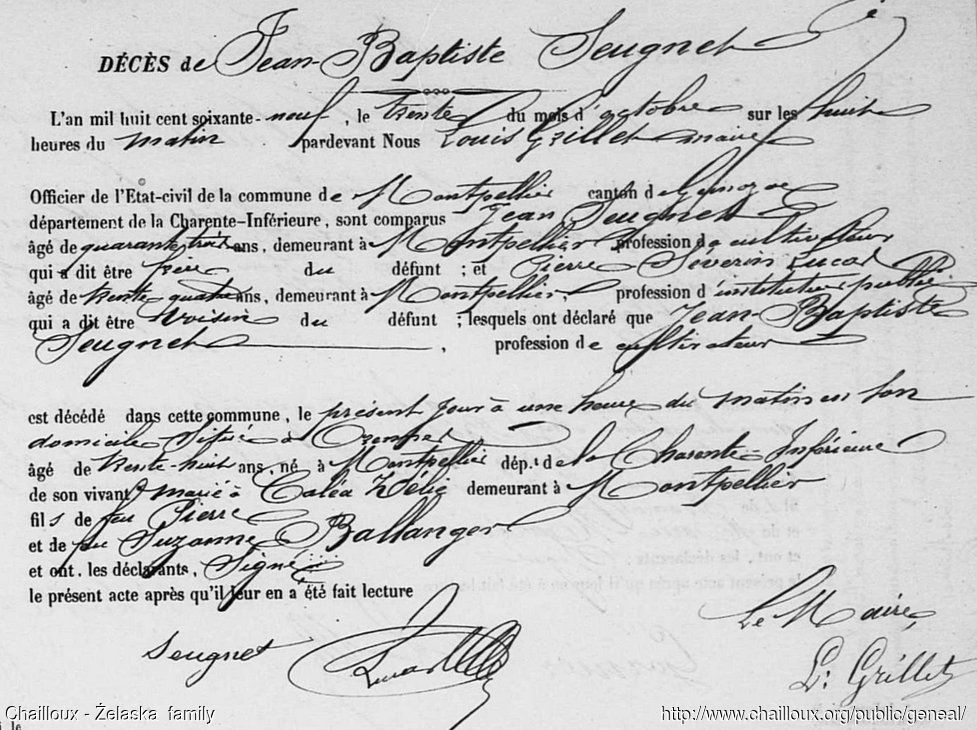 DÉCÈS de Jean-Baptiste Seugnet
L'an mil huit cent soixante-neuf, le trente du mois d'octobre sur les huit
heures du matin pardevant Nous Louis Grillet maire
Officier de l'Etat-civil de la commune de Montpellier canton de Gemozac
département de la Charente-Inférieure, sont comparus Jean Seugnet
âgé de quarante trois ans, demeurant à Montpellier profession de cultivateur
qui a dit être frère du défunt ; et Pierre Séverin Lucas
âgé de trente quatre ans, demeurant à Montpellier, profession d'instituteur public
qui a dit être voisin du défunt ; lesquels ont déclaré que Jean-Baptiste
Seugnet, profession de cultivateur
est décédé dans cette commune, le présent jour à une heure du matin en son
domicile situé à
âgé de trente-huit ans, né à Montpellier dép.t de la Charente Inférieure
de son vivant marié à Zélie demeurant à Montpellier
fils de feu Pierre
et de feu Suzanne Ballanger
et ont, les déclarants, signé
le présent acte après qu'il leur en a été fait lecture
Le Maire,
Seugnet
L. Grillet
Chailloux - Żelaska family http://www.chailloux.org/public/geneal/